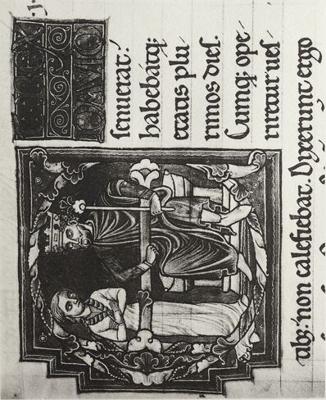 senuerat:
habebatq;
etatis plu
rimos dies.
Cumq; ope
riretur ues
tibz: non calefiebat. Dixerunt ergo